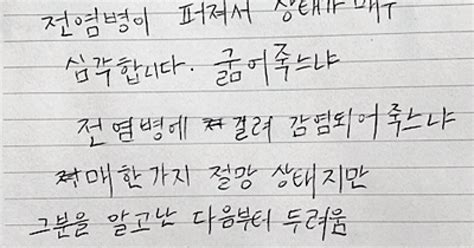 전염병이 퍼져서 상태가 매우
심각합니다. 굶어죽느냐
전염병에 걸려 감염되어죽느냐
매한가지 절망 상태지만
그분을 알고난 다음부터 두려움